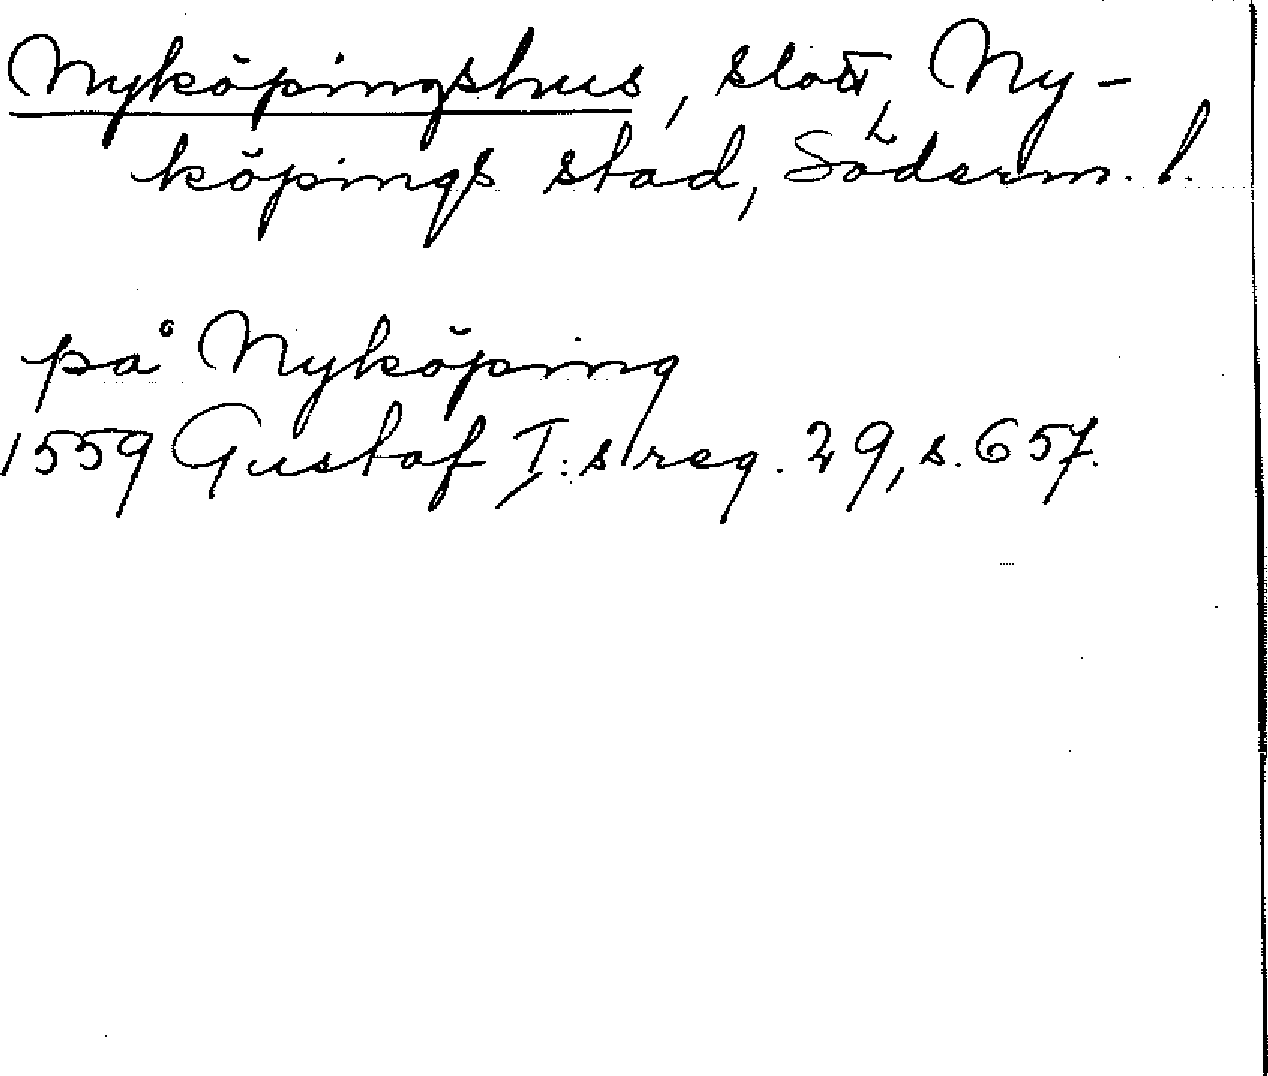 Nyköpingshus, slott, Ny-
köpings stad, Söderm. l.
på Nyköping
1559 Gustaf I:s reg. 29, s. 657.